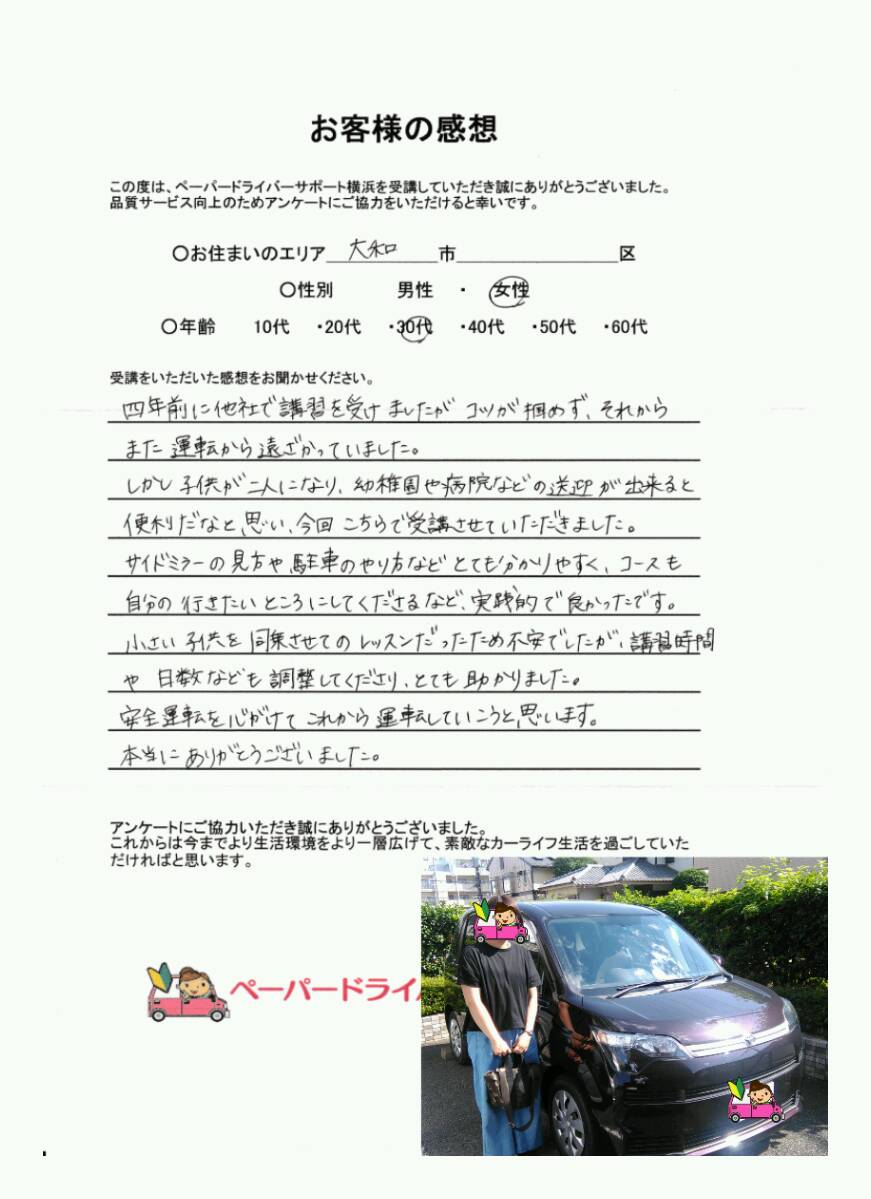 お客様の感想
この度は、ペーパードライバーサポート横浜を受講していただき誠にありがとうございました。
品質サービス向上のためアンケートにご協力をいただけると幸いです。
〇お住まいのエリア 大和 市 区
〇性別 男性 ・ 女性
〇年齢 10代 ・20代 ・30代 ・40代 ・50代 ・60代
受講をいただいた感想をお聞かせください。
四年前に他社で講習を受けましたが コツが掴めず、それから
また運転から遠ざかっていました。
しかし子供が二人になり、幼稚園や病院などの送迎が出来ると
便利だなと思い、今回こちらで受講させていただきました。
サイドミラーの見方や駐車のやり方などとても分かりやすく、コースも
自分の行きたいところにしてくださるなど、実践的で良かったです。
小さい子供を同乗させてのレッスンだったため不安でしたが、講習時間
や日数なども調整してくださり、とても助かりました。
安全運転を心がけてこれから運転していこうと思います。
本当にありがとうございました。
アンケートにご協力いただき誠にありがとうございました。
これからは今までより生活環境をより一層広げて、素敵なカーライフ生活を過ごしていた
だければと思います。
ペーパードライ